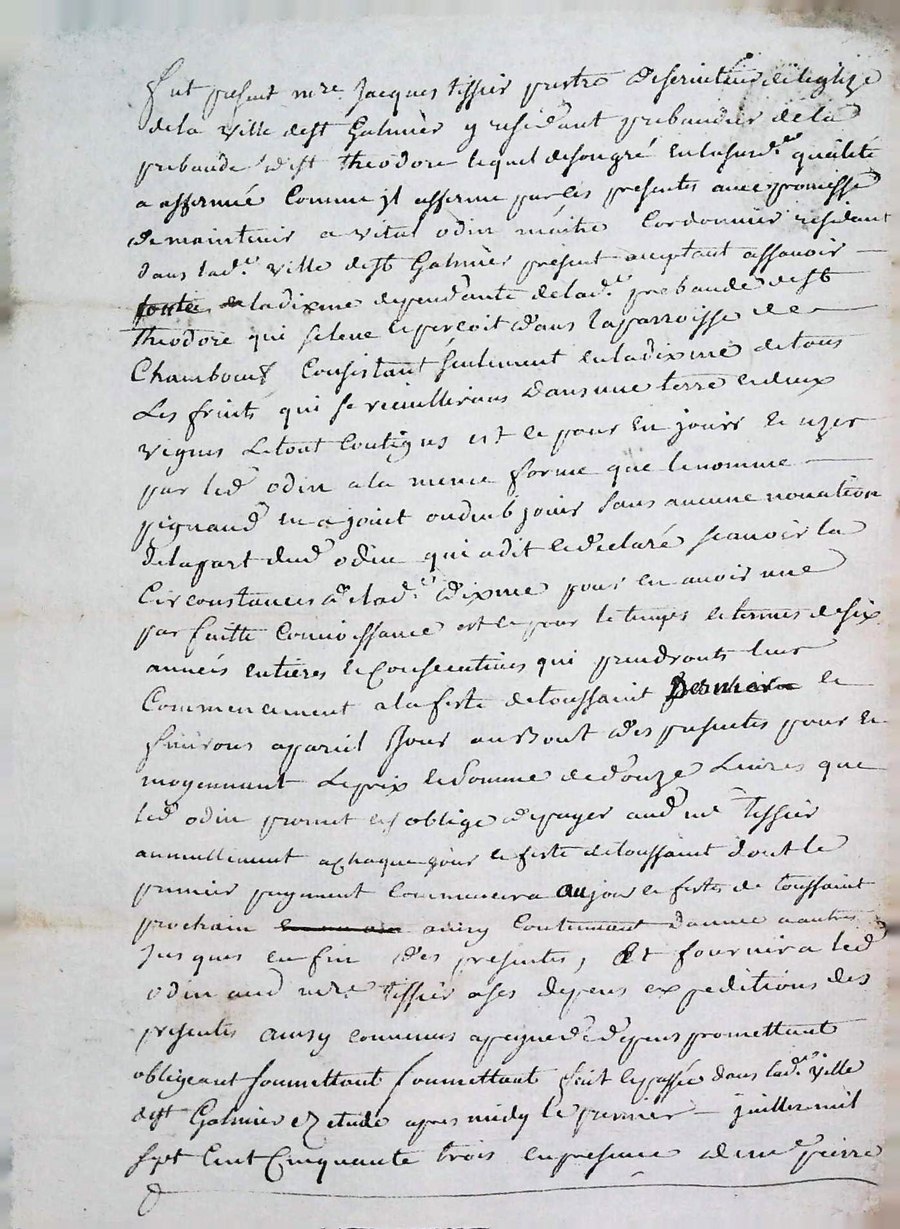 Fut present mre. Jacques tissier pretre deserviteur de leglize
de la ville de st Galmier y residant prebandier de la
prebande de st theodore lequel de son gré en la susd.e qualité
a affermé comme jl afferme par les presentes avec promesse
de maintenir a vital odin maitre cordonnier residant
dans lad.e ville de st Galmier present aceptant assavoir
toute la dixme dependante de lad.e prebande de st
theodore qui se leve et percoit dans la parroisse de
Chambœuf consistant seulement en la dixme de tous
les fruits qui se recuilliront dans une terre et deux
vignes le tout contigus est ce pour en jouir et uzer
par led odin a la meme forme que le nomme
pignand en a jouit ou deub jouir sans aucune novation
de la part dud odin qui a dit et declaré scavoir la
circonstances de lad.e dixme pour en avoir une
parfaitte connoissance est ce pour le temps et termes de six
années entieres et consecutives qui prendronts leur
commencement a la feste de toussaint dernier et
finirons a pareil jour au bout des presentes pour et
moyennant le prix et somme de douze livres que
led odin promet et s'oblige de payer aud mre Tissier
annuellement a chaque jour et feste de toussaint dont le
premier payement commencera au jour et feste de toussaint
prochain ainsy continuant d'annee a autres
jusques en fin des presentes, Et fournira led
odin aud mre. tissier a ses depens expeditions des
presentes ainsy convenus a peyne de depens promettant
obligeant soumettant soumettant fait et passée dans lad.e ville
de st Galmier ez etude apres midy le premier juillet mil
sept cent cinquante trois en presence de me pierre